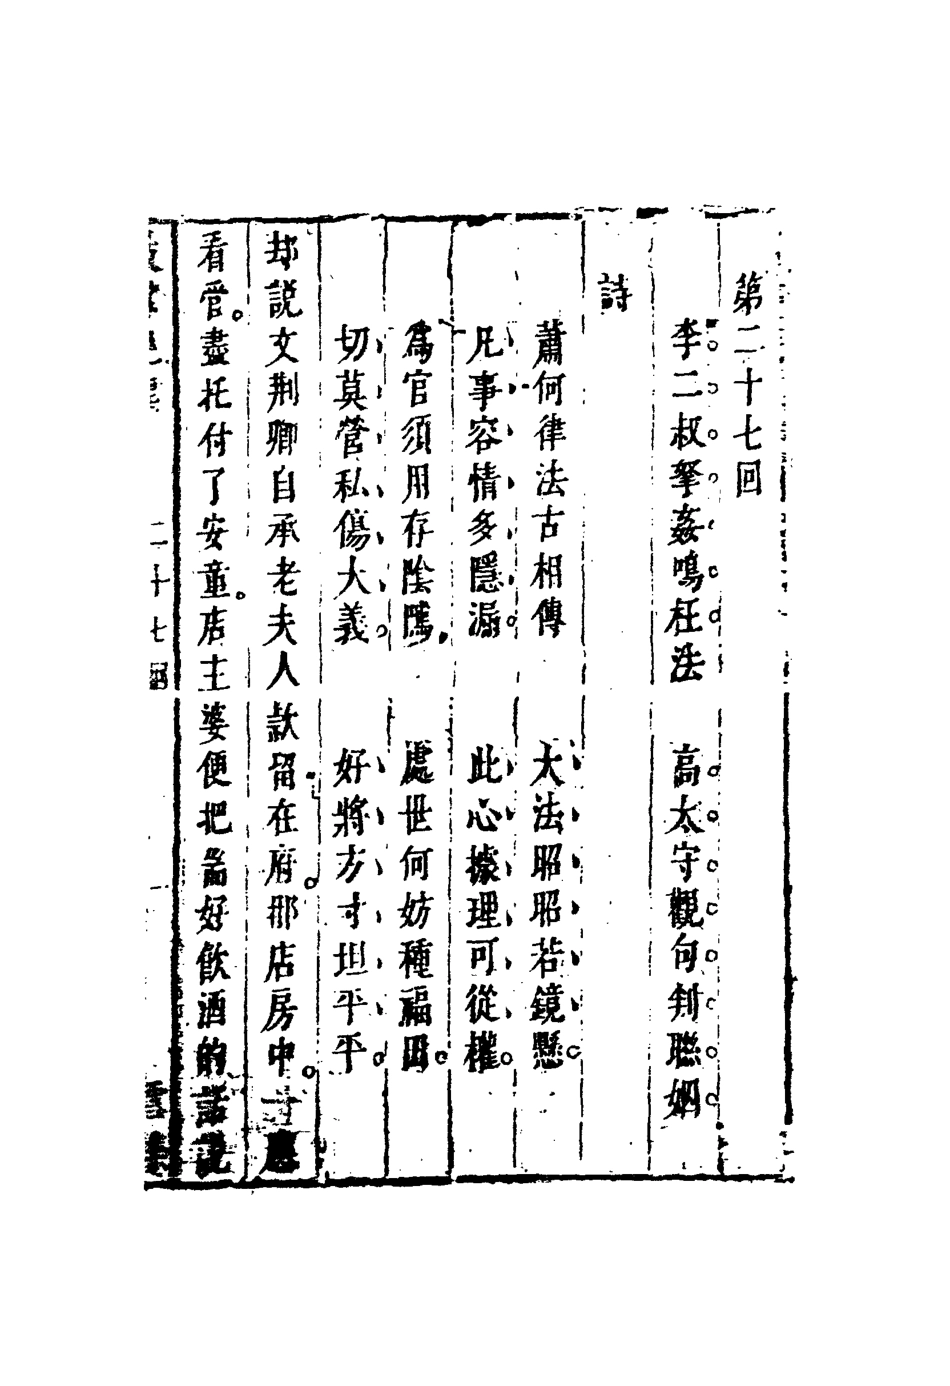 第二十七回
李二叔拏姦鳴枉法　高太守觀句判聯姻
詩
蕭何律法古相傳　大法昭昭若鏡懸
凡事容情多隱漏　此心據理可從權
爲官須用存陰隲　處世何妨種福田
切莫營私傷大義　好將方寸坦平平
却說文荆卿自承老夫人欵留在府那店房中一應
看管盡托付了安童店主婆便把畨好飲酒的話說
二十七回